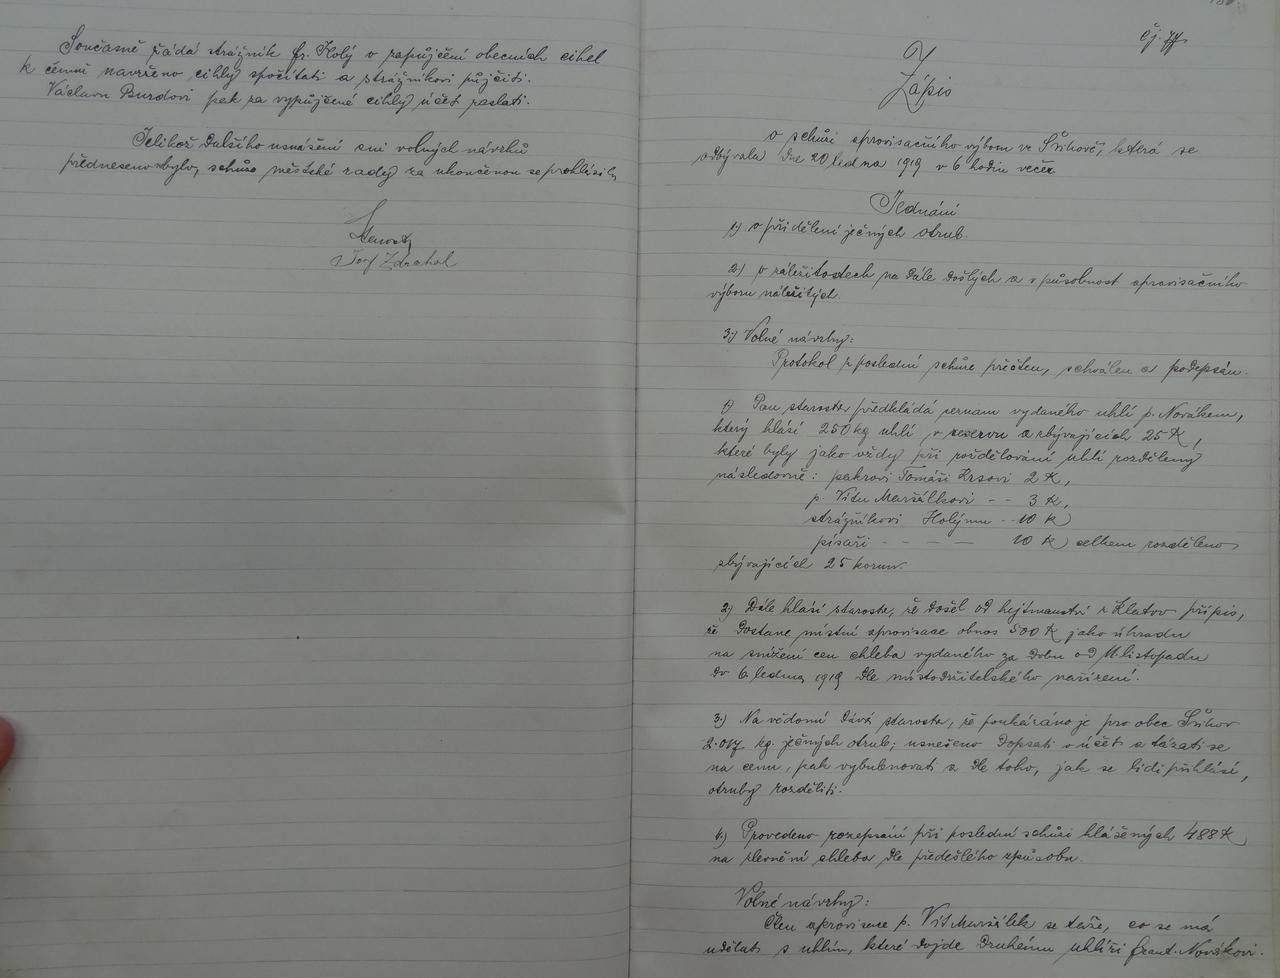 Současně žádá strážník Fr. Holý o zapůjčení obecních cihel
k čemuž navrženo cihly spočítati a strážníkovi půjčiti.
Václavu Burdovi pak za vypůjčené cihly účet zaslati.
Jelikož dalšího usnášení ani volných návrhů
předneseno nebylo, schůze městské rady za ukončenou se prohlásila
Starosta
Josef Zdrahal
Čj. 77
Zápis
o schůzi aprovisačního výboru ve Švihově, která se
odbývala dne 20 ledna 1919 v 6 hodin večer
Jednání
1) o přidělení ječných otrub.
2) o záležitostech na dále došlých a v působnost aprovisačního
výboru náležitých.
3) Volné návrhy:
Protokol z poslední schůze přečten, schválen a podepsán.
1) Pan starosta předkládá seznam vydaného uhlí p. Novákem,
který hlásí 250 kg uhlí v reservu a zbývajících 25 K,
které byly jako vždy při rozdělování uhlí rozděleny
následovně: Tomáši 2 K,
p. Vítu Maršálkovi - - 3 K,
strážníkovi Holýmu - - 10 K
písaři - - - - 10 K celkem rozděleno
zbývajících 25 korun.
2) Dále hlásí starosta, že došel od hejtmanství z Klatov přípis,
že dostane místní aprovisace obnos 500 K jako úhradu
na snížení cen chleba vydaného za dobu od 11. listopadu
do 6. ledna 1919 dle místodržitelského nařízení.
3) Na vědomí dává starosta, že poukázáno je pro obec Švihov
2.017 kg. ječných otrub; usnešeno dopsati o účet a tázati se
na cenu, pak vybubnovati a dle toho, jak se lidi přihlásí,
otruby rozděliti.
4) Provedeno rozepsání při poslední schůzi hlášených 488 K
na zlevnění chleba dle předešlého způsobu.
Volné návrhy:
Člen aprovisace p. Vít Maršálek se táže, co se má
udělati s uhlím, které dojde druhému uhlíři Frant. Novákovi.